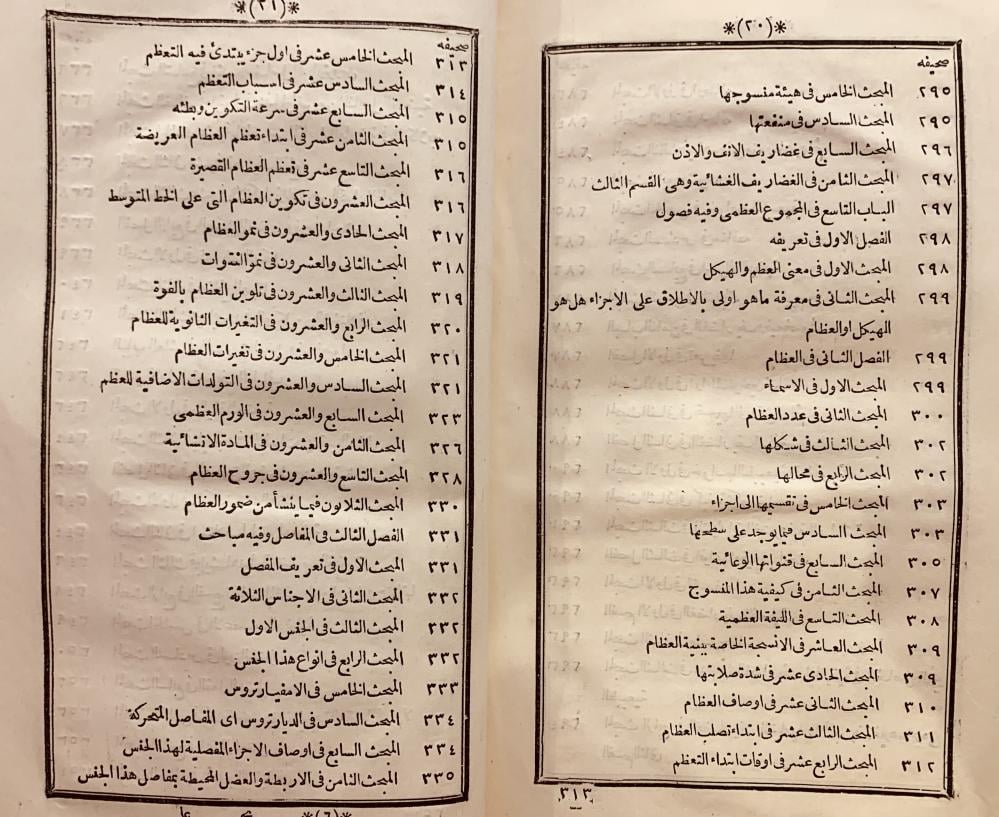 *(٢٠)*
صحيفه
٢٩٥ المبحث الخامس فى هيئة منسوجها
٢٩٥ المبحث السادس فى منفعتها
٢٩٦ المبحث السابع فى غضاريف الانف والاذن
٢٩٧ المبحث الثامن فى الغضاريف الغشائية وهى القسم الثالث
٢٩٧ الباب التاسع فى المجموع العظمى وفيه فصول
٢٩٨ الفصل الاول فى تعريفه
٢٩٨ المبحث الاول فى معنى العظم والهيكل
٢٩٩ المبحث الثانى فى معرفة ماهو اولى بالاطلاق على الاجزاء هل هو
الهيكل او العظام
٢٩٩ الفصل الثانى فى العظام
٢٩٩ المبحث الاول فى الاسماء
٣٠٠ المبحث الثانى فى عدد العظام
٣٠٢ المبحث الثالث فى شكلها
٣٠٢ المبحث الرابع فى محالها
٣٠٣ المبحث الخامس فى تقسيمها الى اجزاء
٣٠٣ المبحث السادس فيما يوجد على سطحها
٣٠٥ المبحث السابع فى قنواتها الوعائية
٣٠٧ المبحث الثامن فى كيفية هذا المنسوج
٣٠٨ المبحث التاسع فى الليفة العظمية
٣٠٩ المبحث العاشر فى الانسجة الخاصة ببنية العظام
٣٠٩ المبحث الحادى عشر فى شدة صلابتها
٣١٠ المبحث الثانى عشر فى اوصاف العظام
٣١١ المبحث الثالث عشر فى ابتداء تصلب العظام
٣١٢ المبحث الرابع عشر فى اوقات ابتداء التعظم
٣١٣
*(٢١)*
صحيفه
٣١٣ المبحث الخامس عشر فى اول جزء يبتدئ فيه التعظم
٣١٤ المبحث السادس عشر فى اسباب التعظم
٣١٥ المبحث السابع عشر فى سرعة التكوين وبطئه
٣١٥ المبحث الثامن عشر فى ابتداء تعظم العظام العريضة
٣١٦ المبحث التاسع عشر فى تعظم العظام القصيرة
٣١٦ المبحث العشرون فى تكوين العظام التى على الخط المتوسط
٣١٧ المبحث الحادى والعشرون فى نمو العظام
٣١٨ المبحث الثانى والعشرون فى نمو النتوات
٣١٩ المبحث الثالث والعشرون فى تلوين العظام بالفوة
٣٢٠ المبحث الرابع والعشرون فى التغيرات الثانوية للعظام
٣٢١ المبحث الخامس والعشررن فى تغيرات العظام
٣٢١ المبحث السادس والعشرون فى التولدات الاضافية للعظم
٣٢٣ المبحث السابع والعشرون فى الورم العظمى
٣٢٦ المبحث الثامن والعشرون فى المادة الانشائية
٣٢٨ المبحث التاسع والعشرون فى جروح العظام
٣٣٠ المبحث الثلاثون فيما ينشأ من ضمور العظام
٣٣١ الفصل الثالث فى المفاصل وفيه مباحث
٣٣١ المبحث الاول فى تعريف المفصل
٣٣٢ المبحث الثانى فى الاجناس الثلاثة
٣٣٢ المبحث الثالث فى الجنس الاول
٣٣٢ المبحث الرابع فى انواع هذا الجنس
٣٣٣ المبحث الخامس فى الامفيارتروس
٣٣٤ المبحث السادس فى الديارتروس اى المفاصل المتحركة
٣٣٤ المبحث السابع فى اوصاف الاجزاء المفصلية لهذا الجنس
٣٣٥ المبحث الثامن فى الاربطة والعضل المحيطة بمفاصل هذا الجنس
*(٦)*